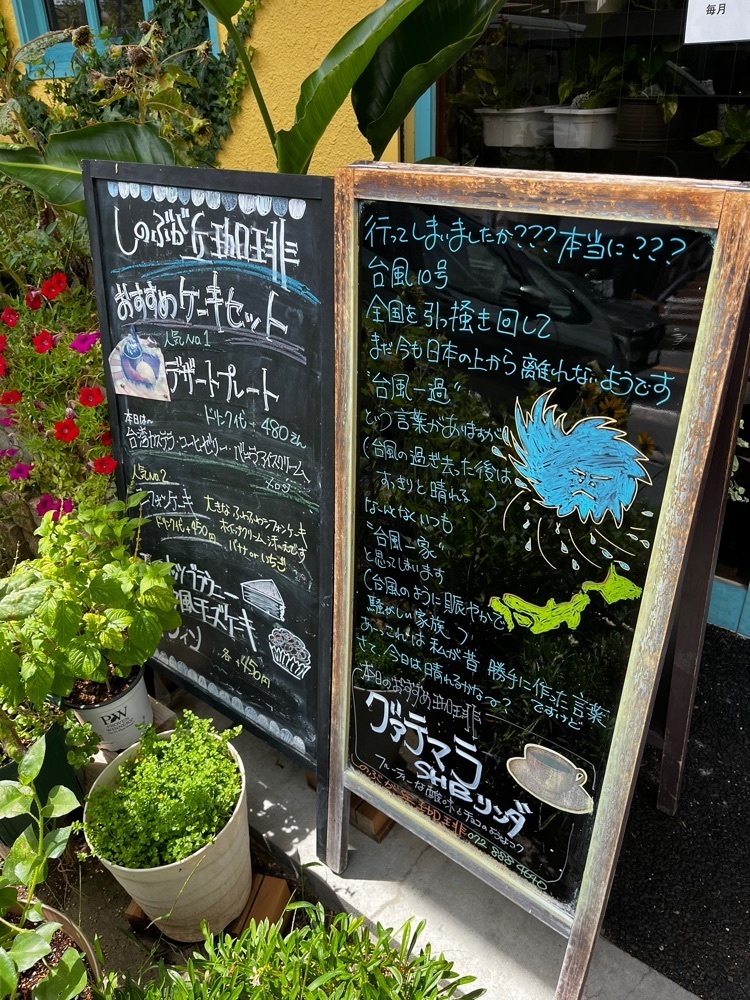 毎月
しのぶが丘珈琲
おすすめケーキセット
人気No.1
デザートプレート
ドリンク代+480円
本日は〜
台湾カステラ・コーヒーゼリー・バニラアイスクリーム
メロン
人気No.2
シフォンケーキ
大きなふわふわシフォンケーキ
ドリンク代+450円
ホイップクリーム
バナナorいちご
ブラウニー
風チーズケーキ
各+450円
行ってしまいましたか???本当に???
台風10号
全国を引っ掻き回して
まだ今も日本の上から離れないようです
"台風一過"
という言葉がありますが
(台風の過ぎ去った後は
すっきりと晴れる)
なんなくいつも
"台風一家"
と思ってしまいます
(台風のように賑やかで
騒がしい家族)
あっこれは私が昔勝手に作った言葉
ですけど
さて、今日は晴れるかなー?
本日のおすすめ珈琲
グァテマラ
SHBリンダ
フルーティーな酸味とチョコのようなコク
しのぶが丘珈琲 072 888 4640
PW